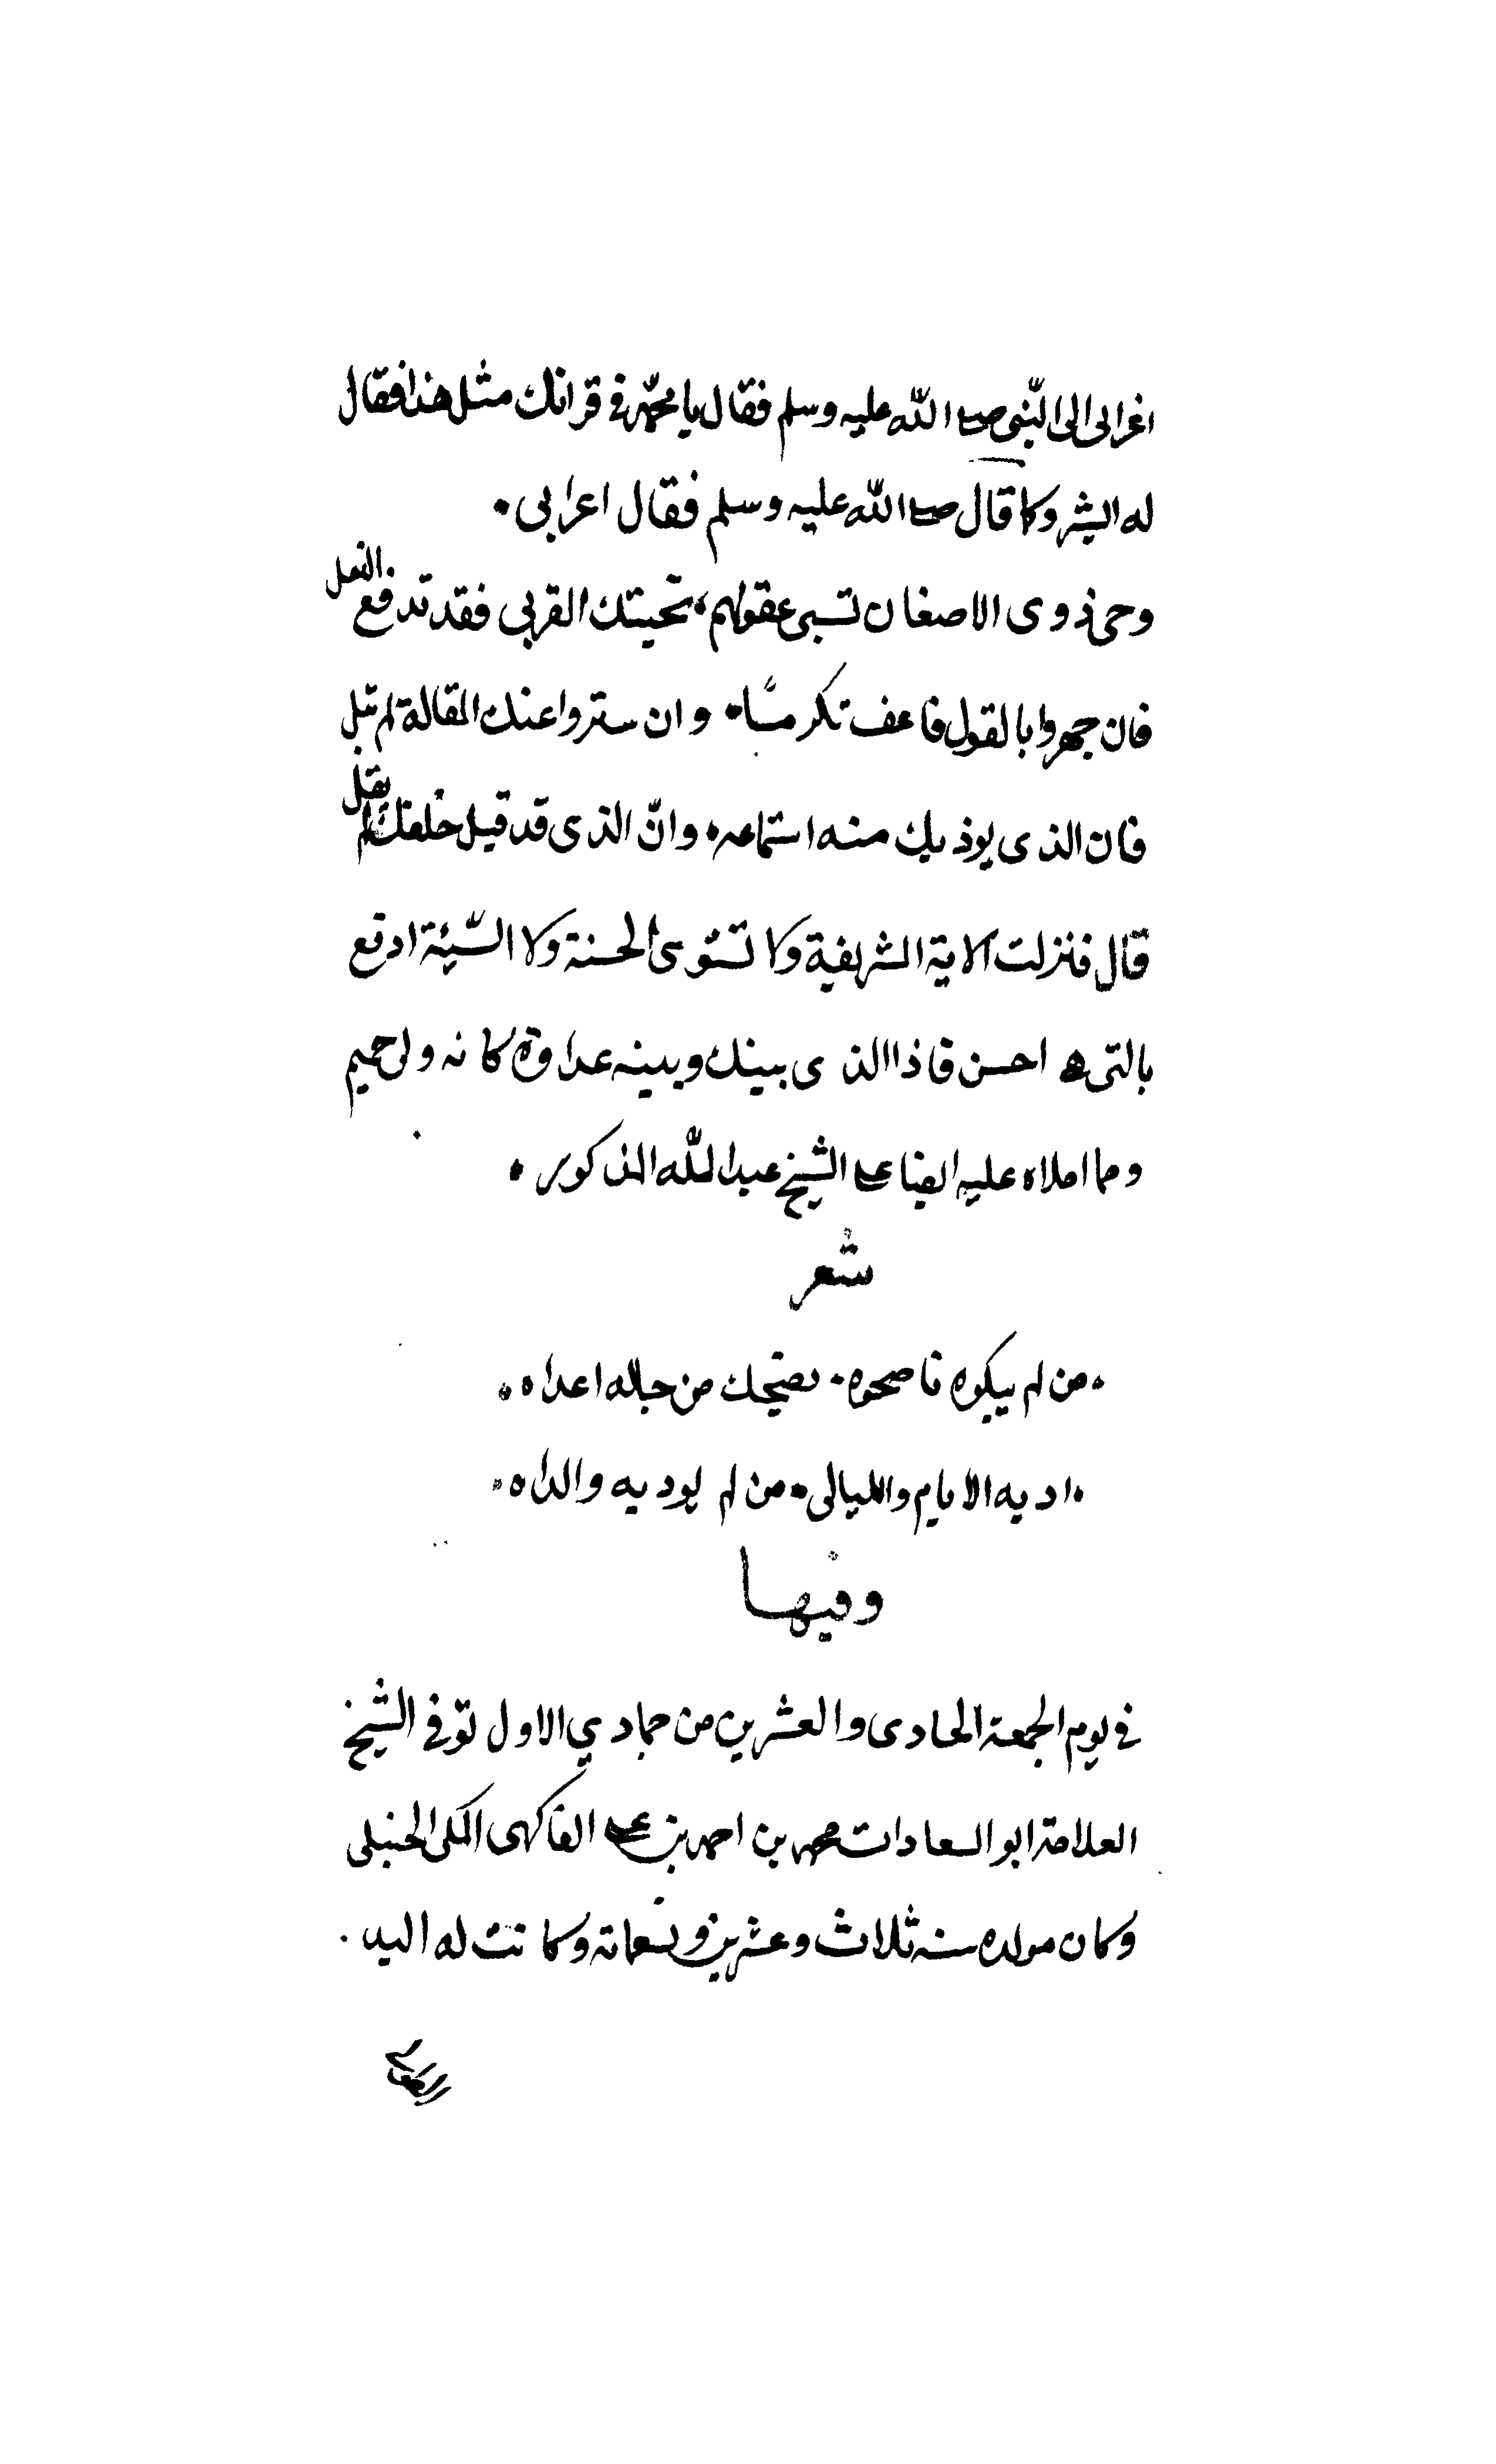 اعرابى الى النّبى صلى الله عليه وسلم فقال يا محمّد فى قرانك مثل هذا فقال
له البشر وكا قال صلى الله عليه وسلم فقال اعرابى ٠
وحى ذوى الاضغان تسبى عقولهم ٠ تحيتك القربى فقد تدفع النغل
فان جهروا بالقول فاعف تكرمًا ٠ وان ستروا عنك المقالة لم تبل
فان الذى يوذيك منه استماعه ٠ وانّ الذى قد قيل خلفك لم يقل
قال فنزلت الاية الشريفة ولا تستوى الحسنة ولا السّيئة ادفع
بالتى هى احسن فاذا الذى بينك وبينه عداوة كانه ولى حميم
ومما املاه عليه ايضا على الشيخ عبد الله المذكور ٠
شعر
٠ من لم يبكوه ناصحوه ٠ يضحك من حاله اعداه ٠
٠ اد به الايام والليالى ٠ من لم يود به والداه ٠
وفيها
فى يوم الجمعة الحادى والعشرين من جمادي الاول توفى الشيخ
العلامة ابو السعادات محمد بن احمد بن على الفاكهى المكى الحنبلى
وكان مولده سنه ثلاث وعشرين وتسعمائة وكانت له اليد ٠